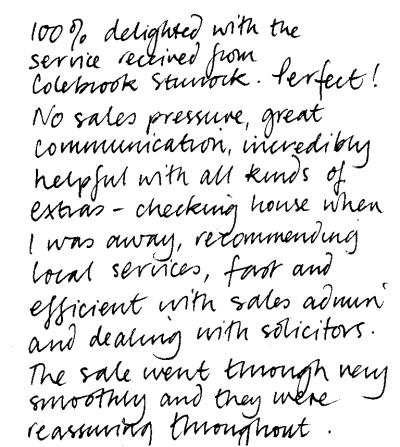 100% delighted with the
service received from
Colebrook Sturrock. Perfect!
No sales pressure, great
communication, incredibly
helpful with all kinds of
extras - checking house when
I was away, recommending
local services, fast and
efficient with sales admin
and dealing with solicitors.
The sale went through very
smoothly and they were
reassuring throughout.